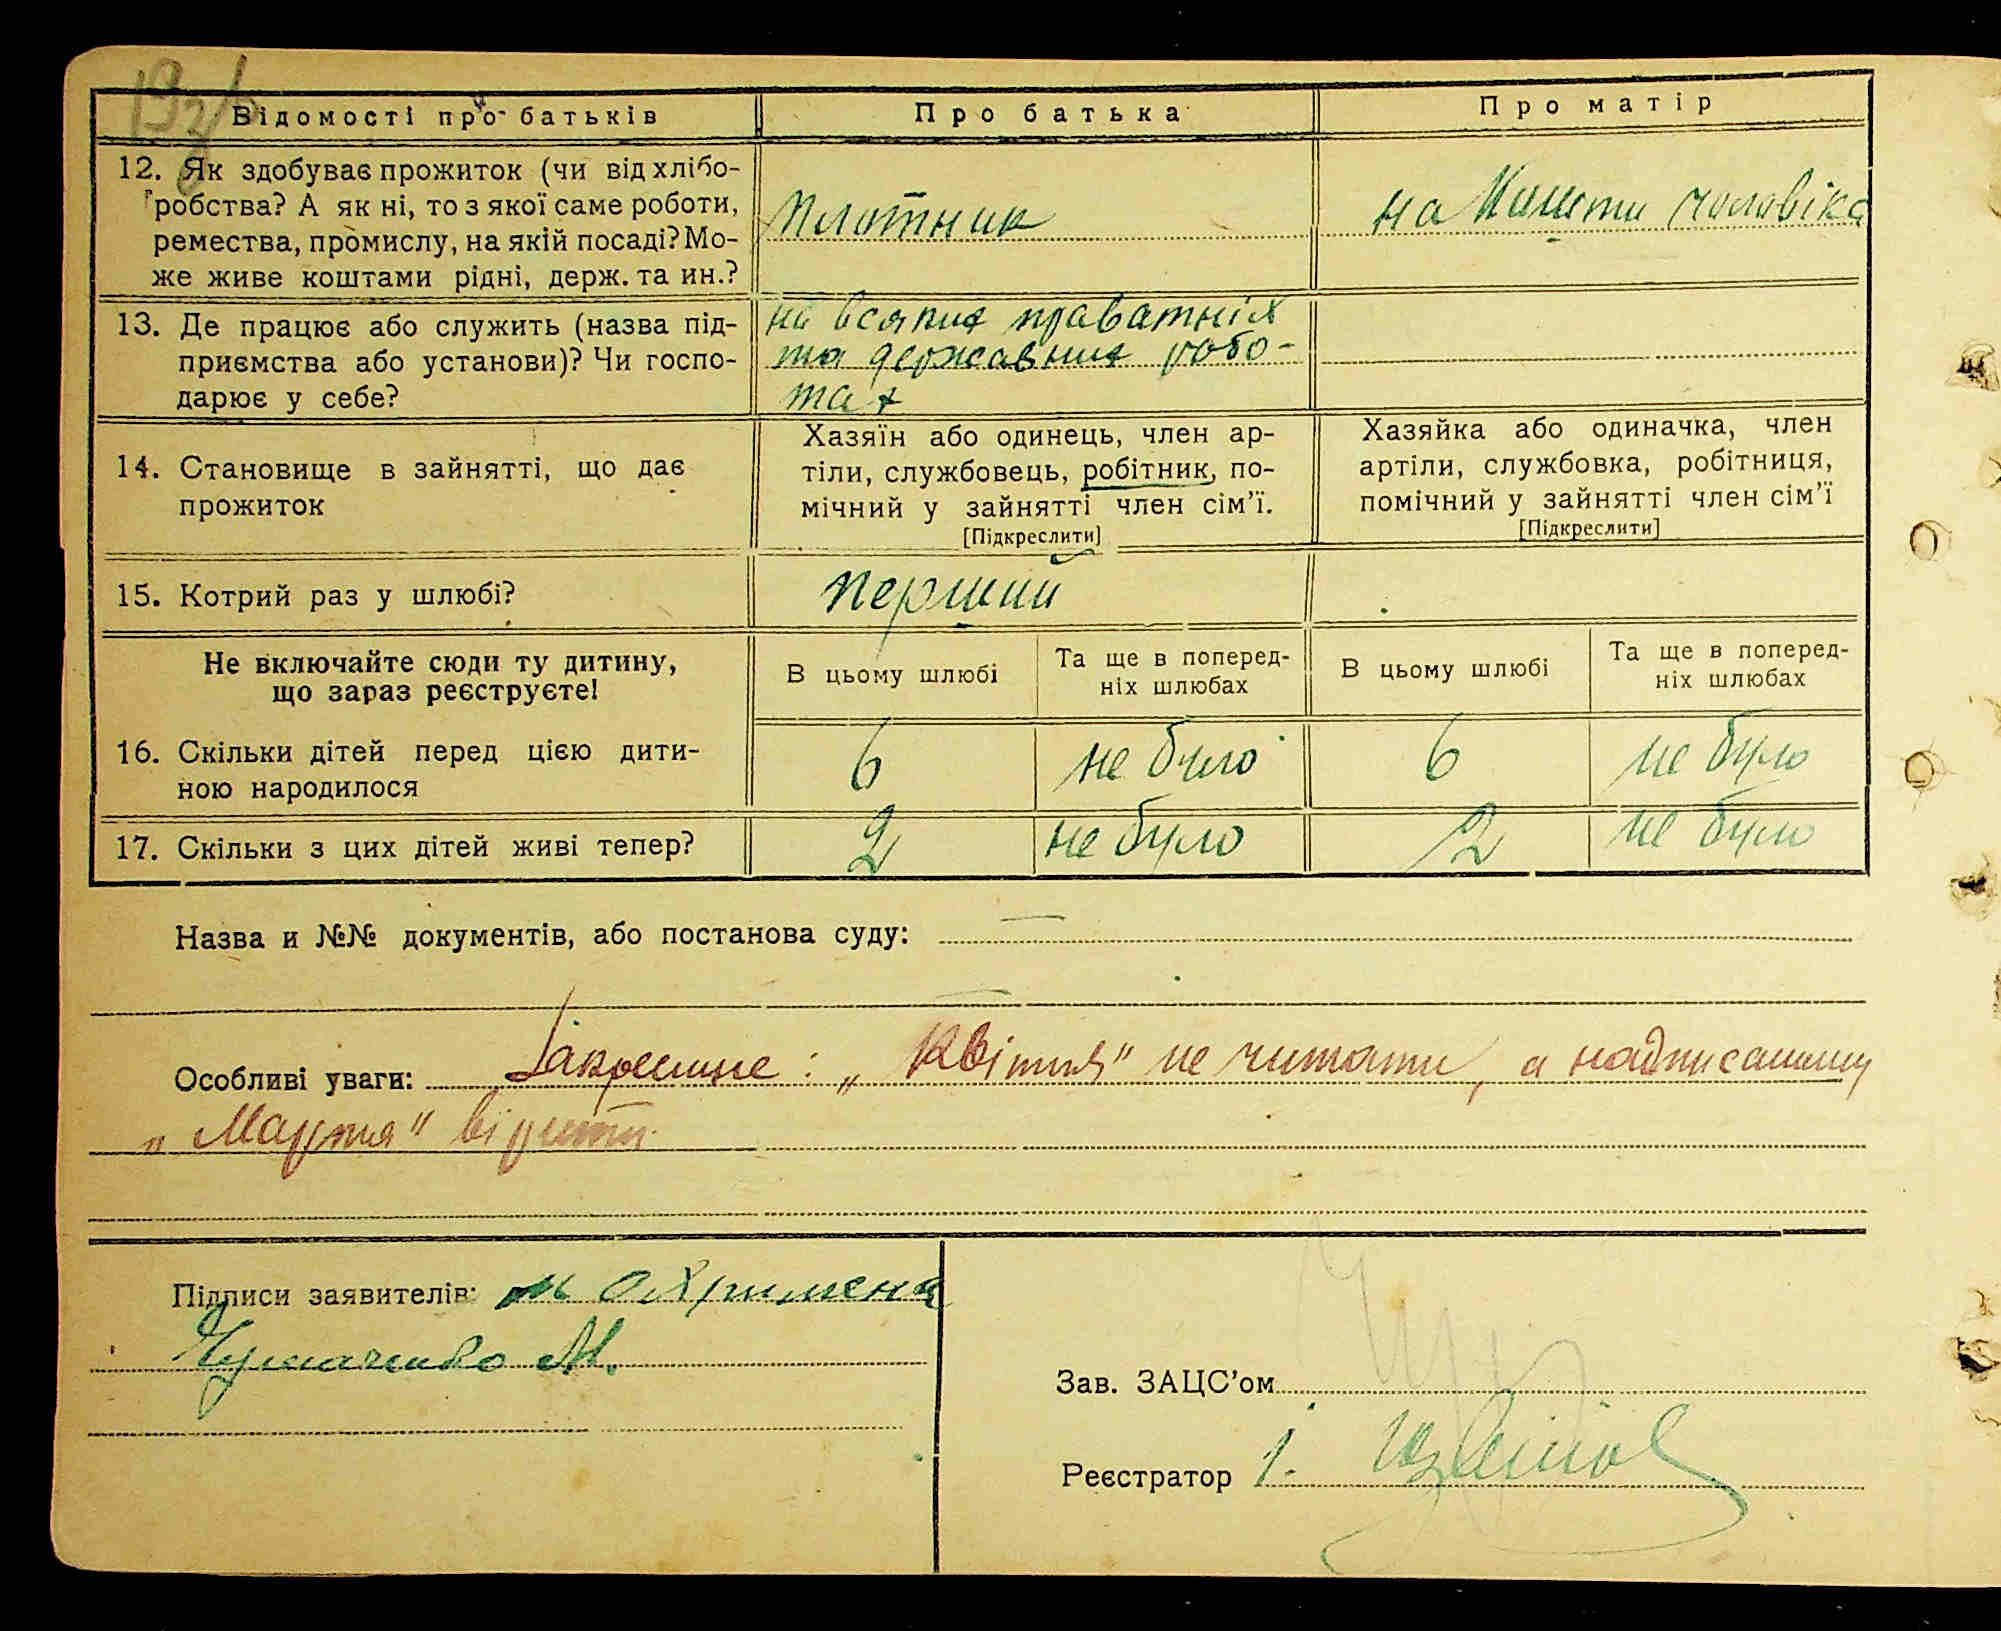 Відомості про батьків
Про батька
Про матір
12. Як здобуває прожиток (чи від хлібо-
робства? А як ні, то з якої саме роботи,
ремества, промислу, на якій посаді? Мо-
же живе коштами рідні, держ. та ин.?
Плотник
на Кошти чоловіка
13. Де працює або служить (назва під-
приємства або установи)? Чи госпо-
дарює у себе?
на всяких праватніх
та державних робо-
тах
14. Становище в зайнятті, що дає
прожиток
Хазяїн або одинець, член ар-
тіли, службовець, робітник, по-
мічний у зайнятті член сім'ї.
[Підкреслити]
Хазяйка або одиначка, член
артіли, службовка, робітниця,
помічний у зайнятті член сім'ї
[Підкреслити]
15. Котрий раз у шлюбі?
перший
Не включайте сюди ту дитину,
що зараз реєструєте!
В цьому шлюбі
Та ще в поперед-
ніх шлюбах
В цьому шлюбі
Та ще в поперед-
ніх шлюбах
16. Скільки дітей перед цією дити-
ною народилося
6
не було
6
не було
17. Скільки з цих дітей живі тепер?
2
не було
2
не було
Назва и №№ документів, або постанова суду:
Особливі уваги: Закреслине: „Квітня" не читати, а надписаному
„Мартя" вірити.
Підписи заявителів: М Охримена
Чумаченко М.
Зав. ЗАЦС'ом
Реєстратор 1.